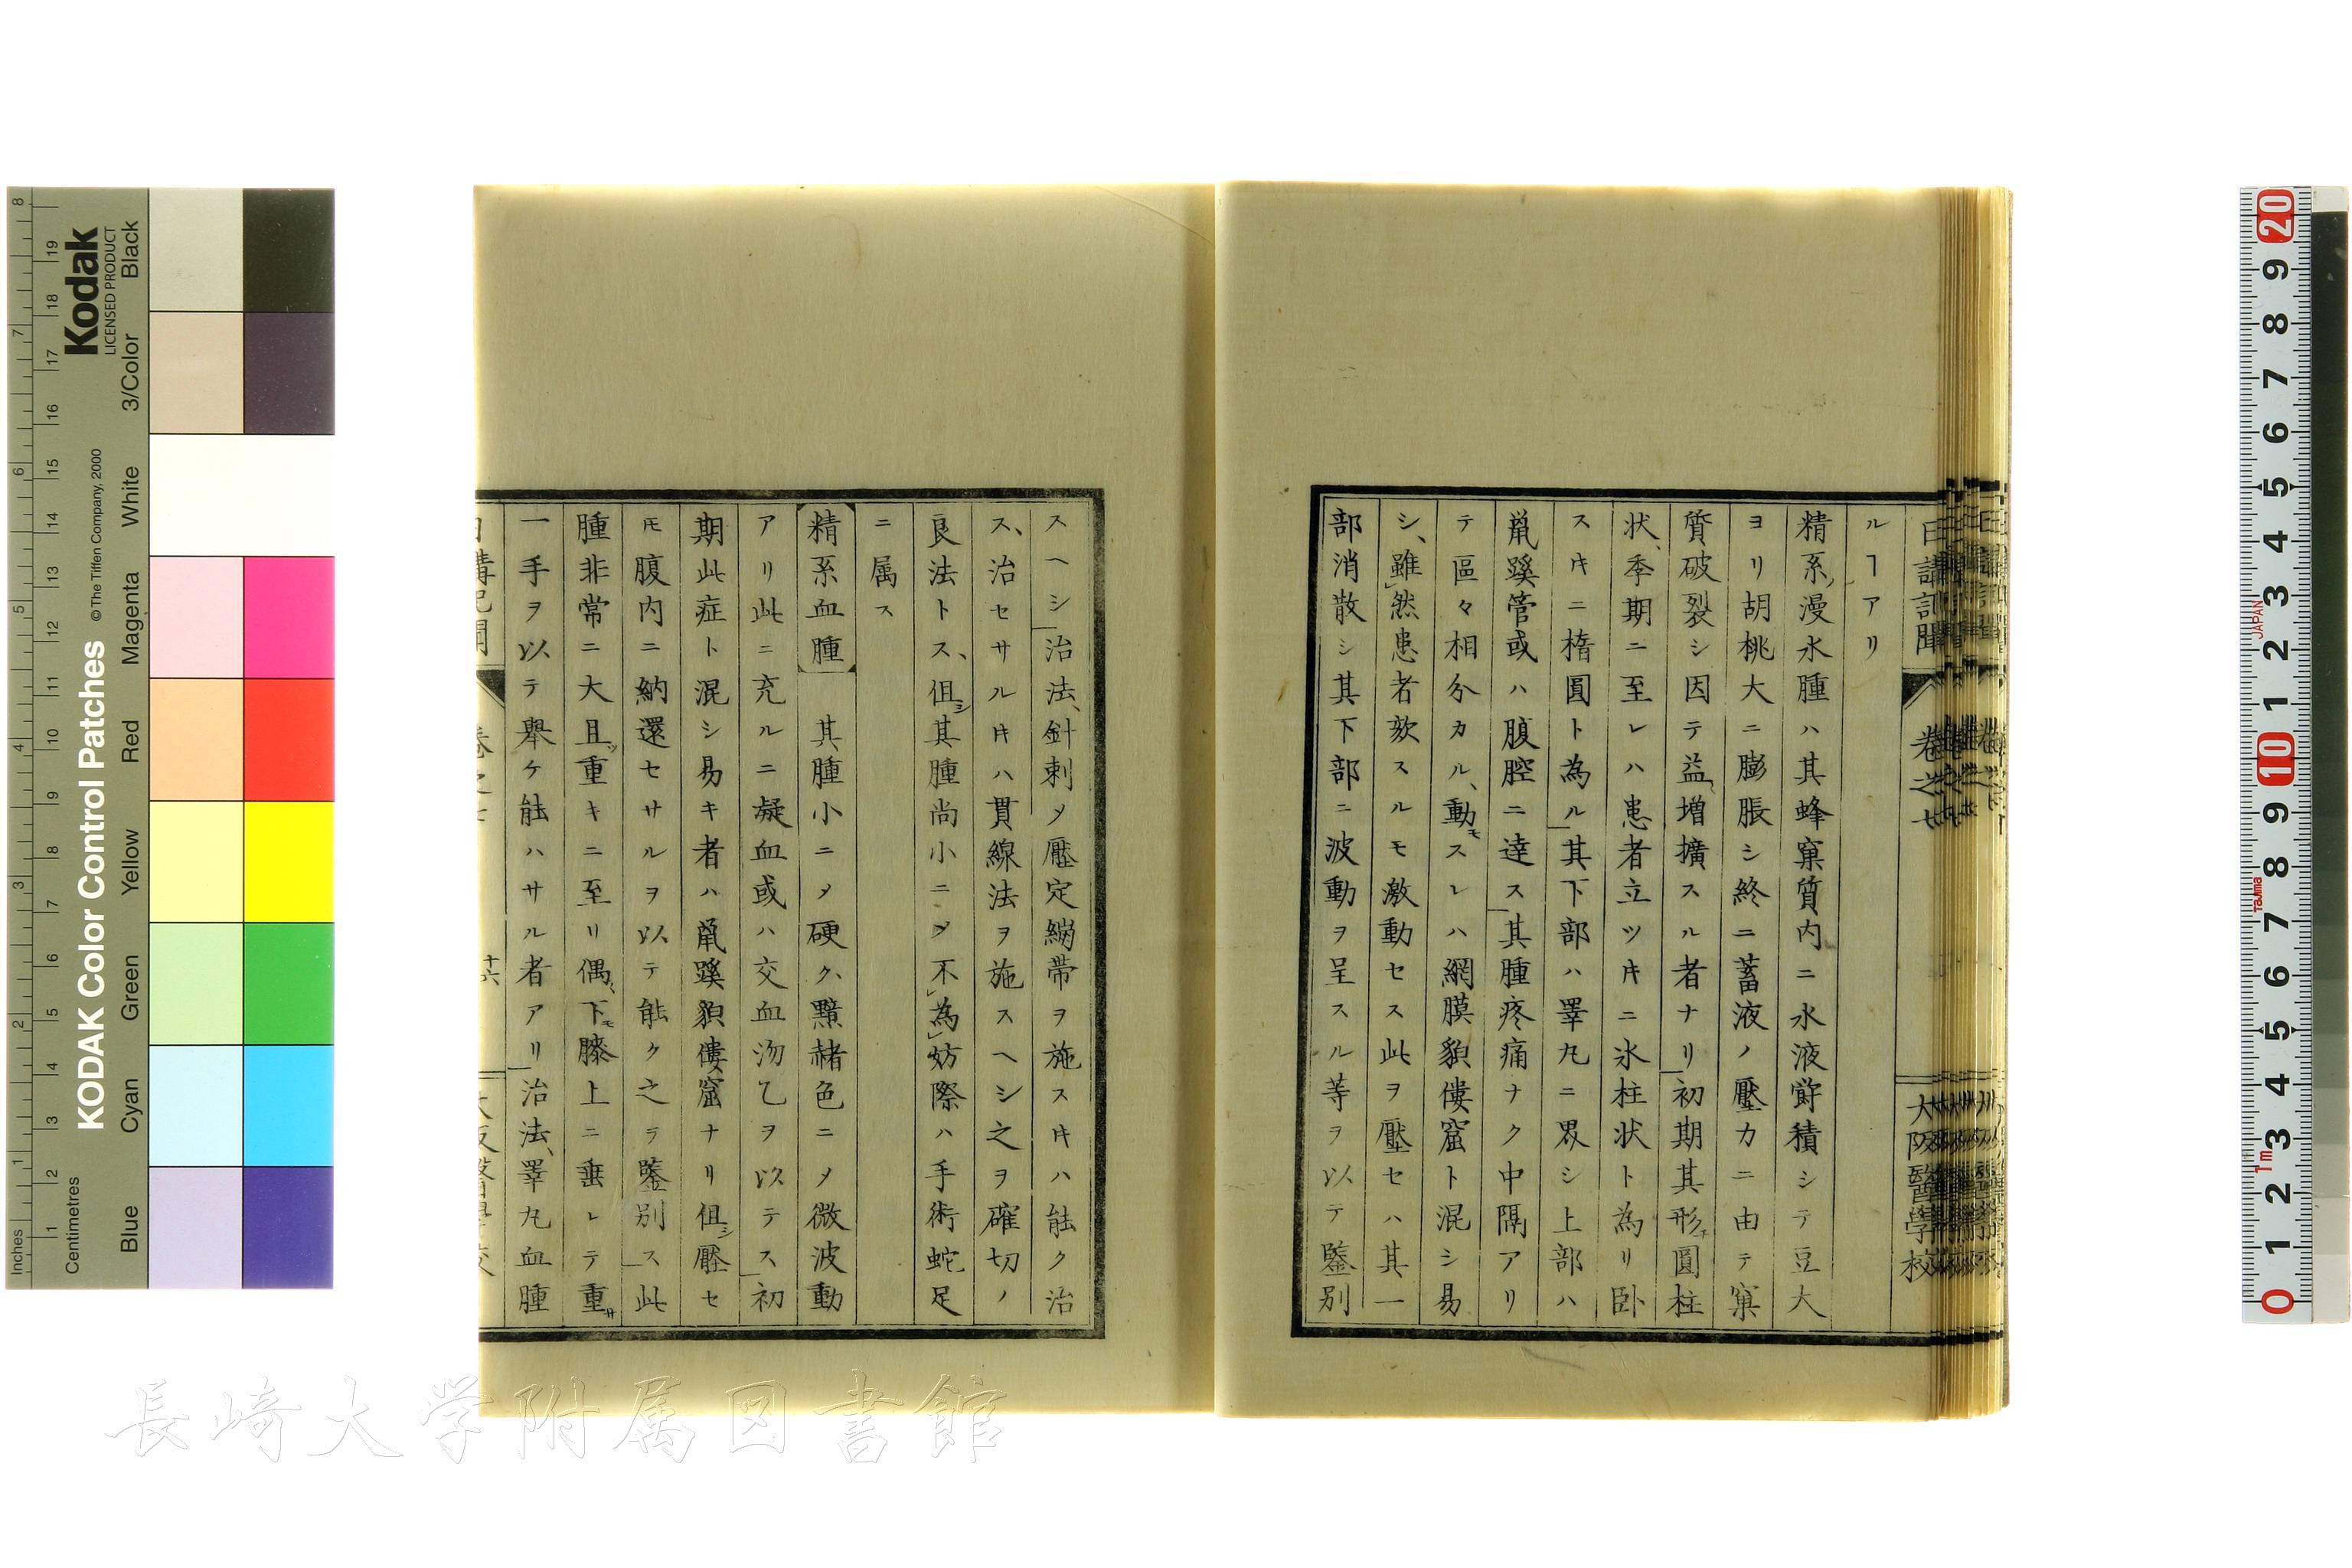 日講記聞 卷之七 大阪醫學校
ルヿアリ
精系漫水腫ハ其蜂窠質内ニ水液瀦積シテ豆大
ヨリ胡桃大ニ膨脹シ終ニ蓄液ノ壓力ニ由テ窠
質破裂シ因テ益増擴スル者ナリ初期其形圓柱
状、季期ニ至レハ患者立ツ牛ニ氷柱状ト為リ卧
ス牛ニ楕圓ト為ル其下部ハ睾丸ニ界シ上部ハ
鼠蹊管或ハ腹腔ニ達ス其腫疼痛ナク中隔アリ
テ區々相分カル、動モスレハ網膜貌僂窟ト混シ易
シ、雖然患者欬スルモ激動セス此ヲ壓セハ其一
部消散シ其下部ニ波動ヲ呈スル等ヲ以テ鑒別
スヘシ治法、針刺メ壓定繃帯ヲ施ス牛ハ能ク治
ス、治セサル牛ハ貫線法ヲ施スヘシ之ヲ確切ノ
良法トス、但シ其腫尚小ニメ不為妨際ハ手術蛇足
ニ属ス
精系血腫 其腫小ニメ硬ク、黯赭色ニメ微波動
アリ此ニ充ルニ凝血或ハ交血沕乙ヲ以テス初
期此症ト混シ易キ者ハ鼠蹊貌僂窟ナリ但シ壓セ
𪜈腹内ニ納還セサルヲ以テ能ク之ラ鑒別ス此
腫非常ニ大且ツ重キニ至リ偶下モ膝上ニ垂レテ重サ
一手ヲ以テ舉ケ能ハサル者アリ治法、睾丸血腫
日講記聞 卷之七 十六 大阪醫學校
Kodak
LICENSED PRODUCT
KODAK Color Control Patches
© The Tiffen Company, 2000
Inches
Centimetres
Blue Cyan Green Yellow Red Magenta White 3/Color Black
JAPAN
Tajima
1m
長崎大学附属図書館